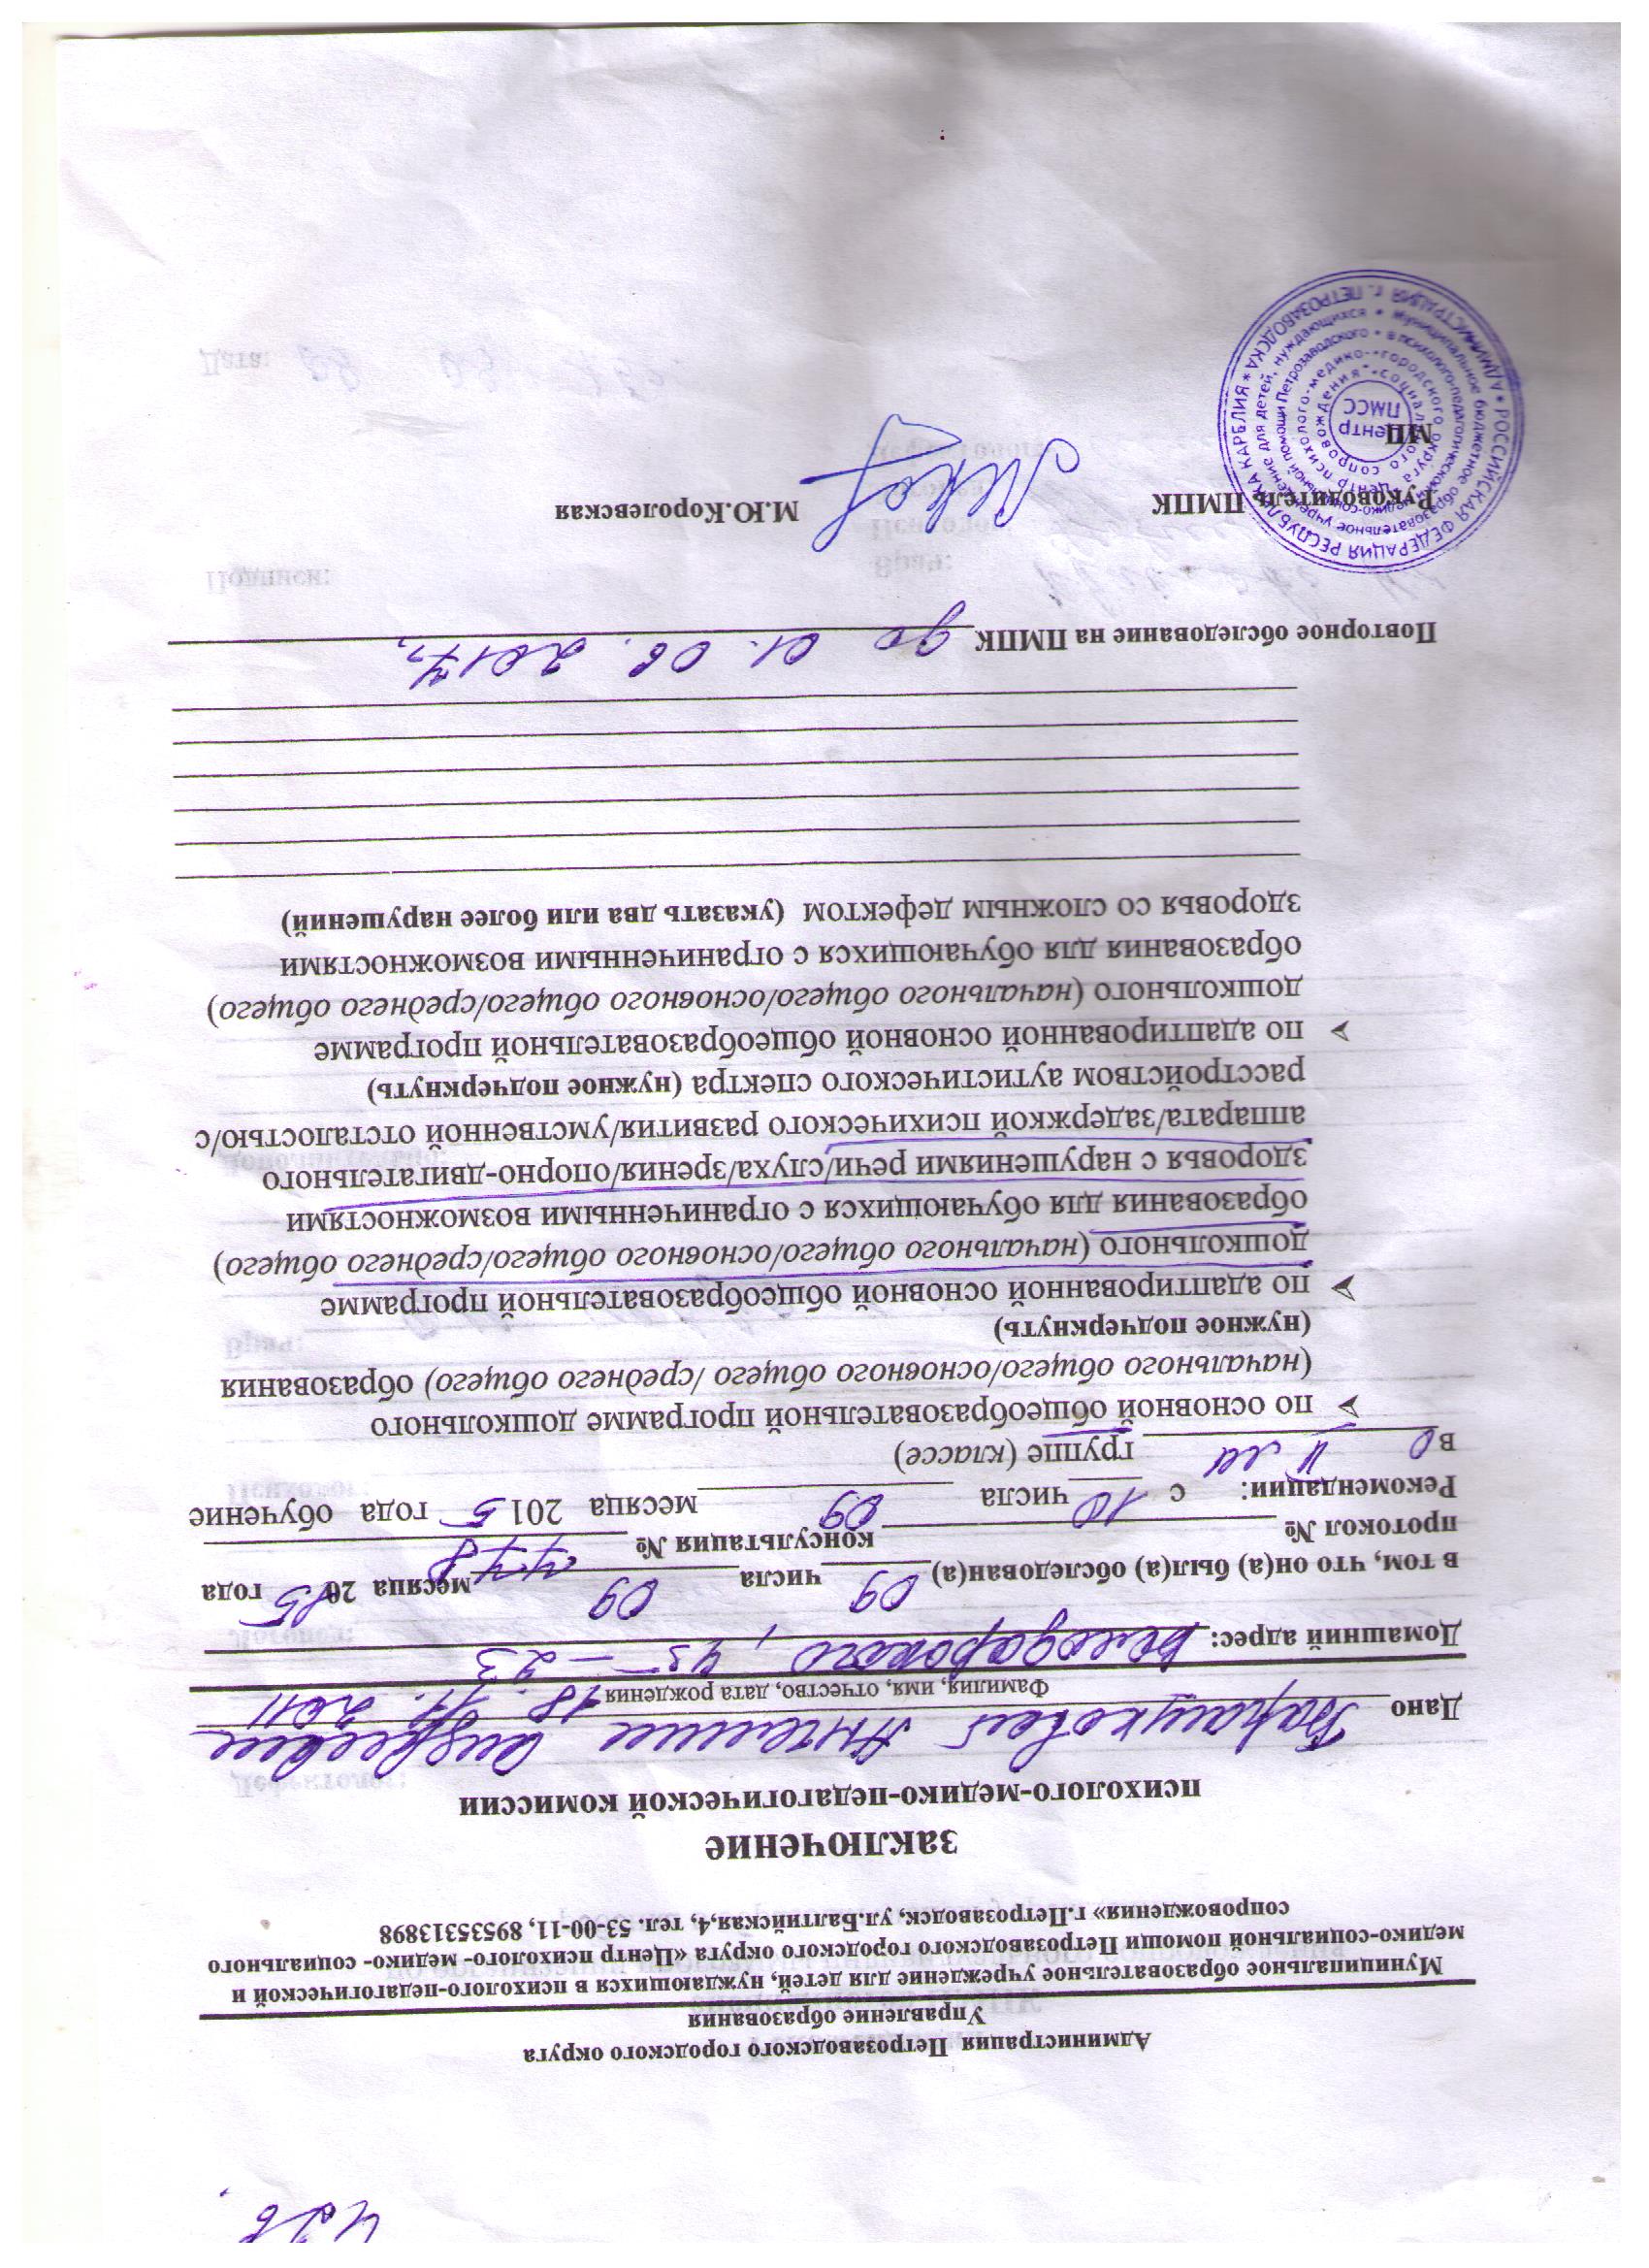 Администрация Петрозаводского городского округа
Управление образования
Муниципальное образовательное учреждение для детей, нуждающихся в психолого-педагогической и
медико-социальной помощи Петрозаводского городского округа «Центр психолого- медико- социального
сопровождения» г.Петрозаводск, ул.Балтийская,4, тел. 53-00-11, 89535313898
заключение
психолого-медико-педагогической комиссии
Дано
Фамилия, имя, отчество, дата рождения 18. 11. 2011
Домашний адрес: 45 – 23
в том, что он(а) был(а) обследован(а) 09 числа 09 месяца 2015 года
протокол № консультация № 778
Рекомендации: с 10 числа 09 месяца 2015 года обучение
в группе (классе)
➢ по основной общеобразовательной программе дошкольного
(начального общего/основного общего /среднего общего) образования
(нужное подчеркнуть)
➢ по адаптированной основной общеобразовательной программе
дошкольного (начального общего/основного общего/среднего общего)
образования для обучающихся с ограниченными возможностями
здоровья с нарушениями речи/слуха/зрения/опорно-двигательного
аппарата/задержкой психического развития/умственной отсталостью/с
расстройством аутистического спектра (нужное подчеркнуть)
➢ по адаптированной основной общеобразовательной программе
дошкольного (начального общего/основного общего/среднего общего)
образования для обучающихся с ограниченными возможностями
здоровья со сложным дефектом (указать два или более нарушений)
Повторное обследование на ПМПК до 01. 06. 2017
Руководитель ПМПК М.Ю.Королевская
МП
РОССИЙСКАЯ ФЕДЕРАЦИЯ РЕСПУБЛИКА КАРЕЛИЯ * АДМИНИСТРАЦИЯ г. ПЕТРОЗАВОДСКА *
Центр
ПМСС